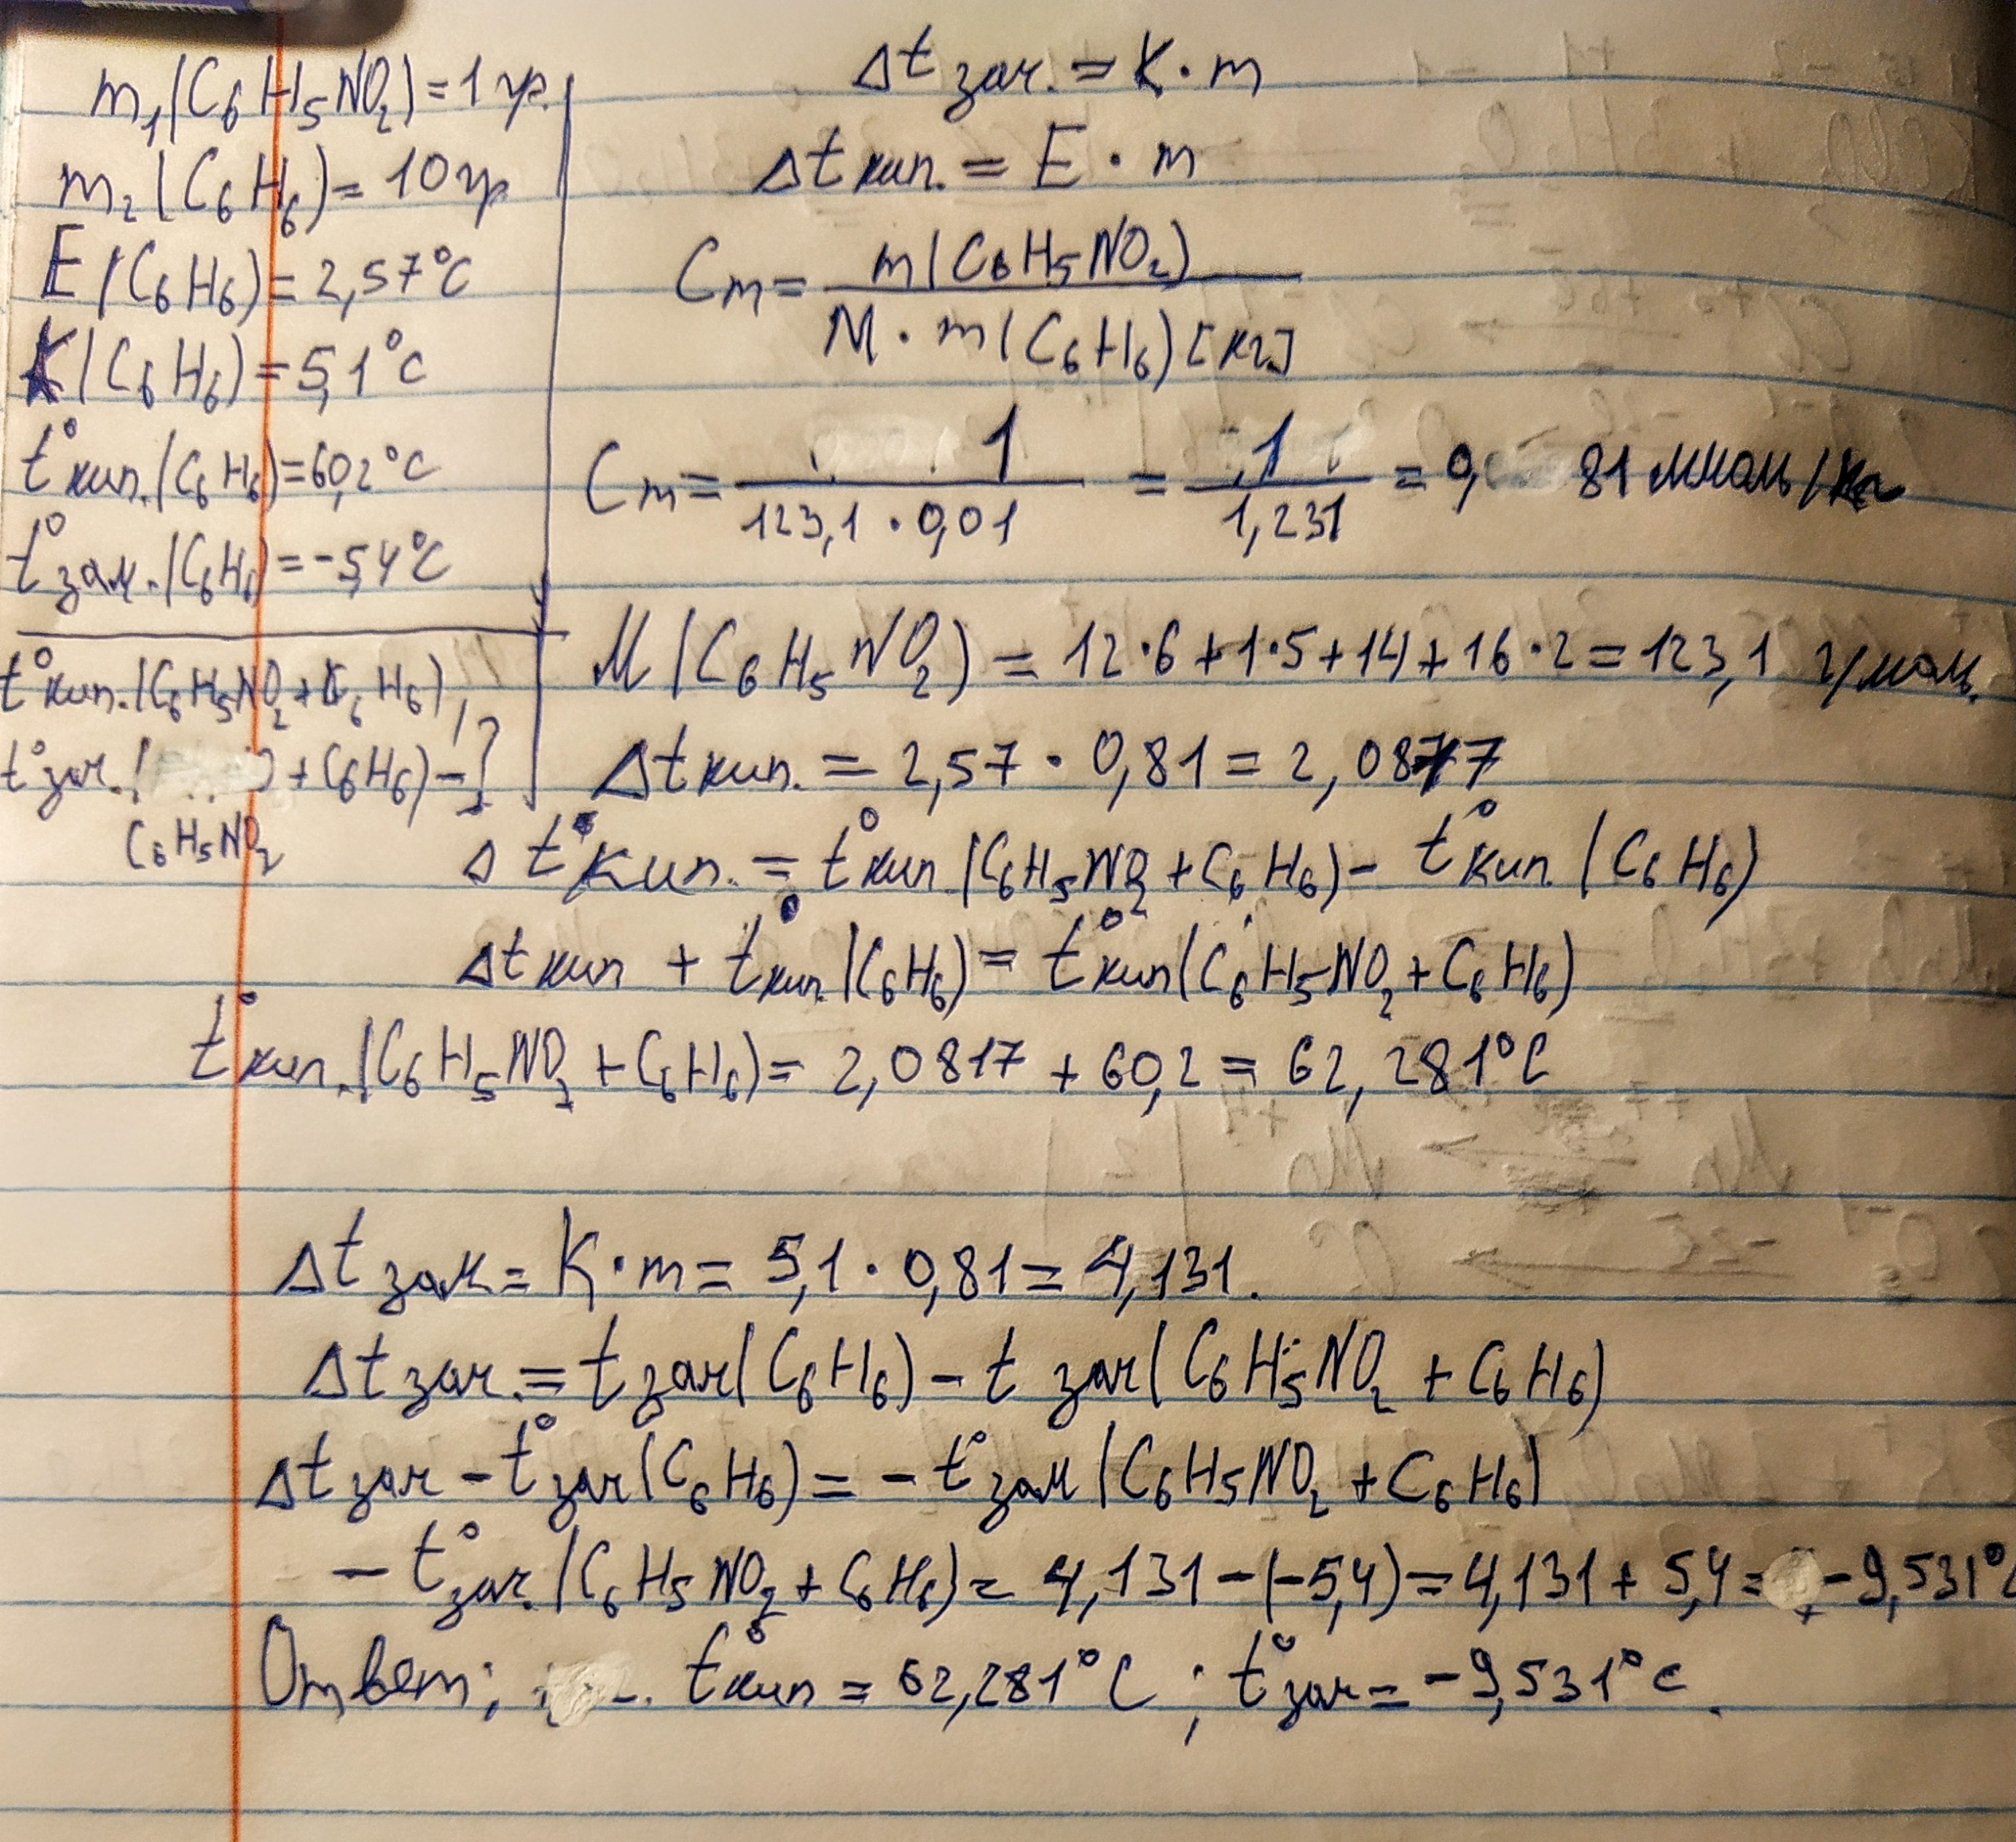 m₁(C₆H₅NO₂)=1 гр.
m₂(C₆H₆)=10гр
E(C₆H₆)=2,57°C
K(C₆H₆)=5,1°C
t°кип.(C₆H₆)=60,2°C
t°зам.(C₆H₆)=-5,4°C
t°кип.(C₆H₅NO₂+C₆H₆),
t°зам.( +C₆H₆)-?
C₆H₅NO₂
Δt зам. = K·m
Δt кип. = E·m
Cm= m(C₆H₅NO₂) / M·m(C₆H₆)[кг]
Cm= 1 / 123,1·0,01 = 1 / 1,231 = 0, 81 ммоль/кг
M(C₆H₅NO₂) = 12·6+1·5+14+16·2=123,1 г/моль.
Δt кип. = 2,57·0,81=2,0877
Δt°кип. = t°кип.(C₆H₅NO₂+C₆H₆)- t°кип.(C₆H₆)
Δt кип + t°кип.(C₆H₆)= t°кип(C₆H₅NO₂+C₆H₆)
t°кип.(C₆H₅NO₂+C₆H₆)= 2,0817 +60,2=62,281°C
Δt зам = K·m= 5,1·0,81=4,131.
Δt зам.=t зам(C₆H₆)- t зам(C₆H₅NO₂+C₆H₆)
Δt зам -t°зам(C₆H₆)= -t°зам(C₆H₅NO₂+C₆H₆)
-t°зам.(C₆H₅NO₂+C₆H₆)= 4,131-(-5,4)=4,131+5,4= -9,531°C
Ответ: t°кип=62,281°C; t°зам=-9,531°C.